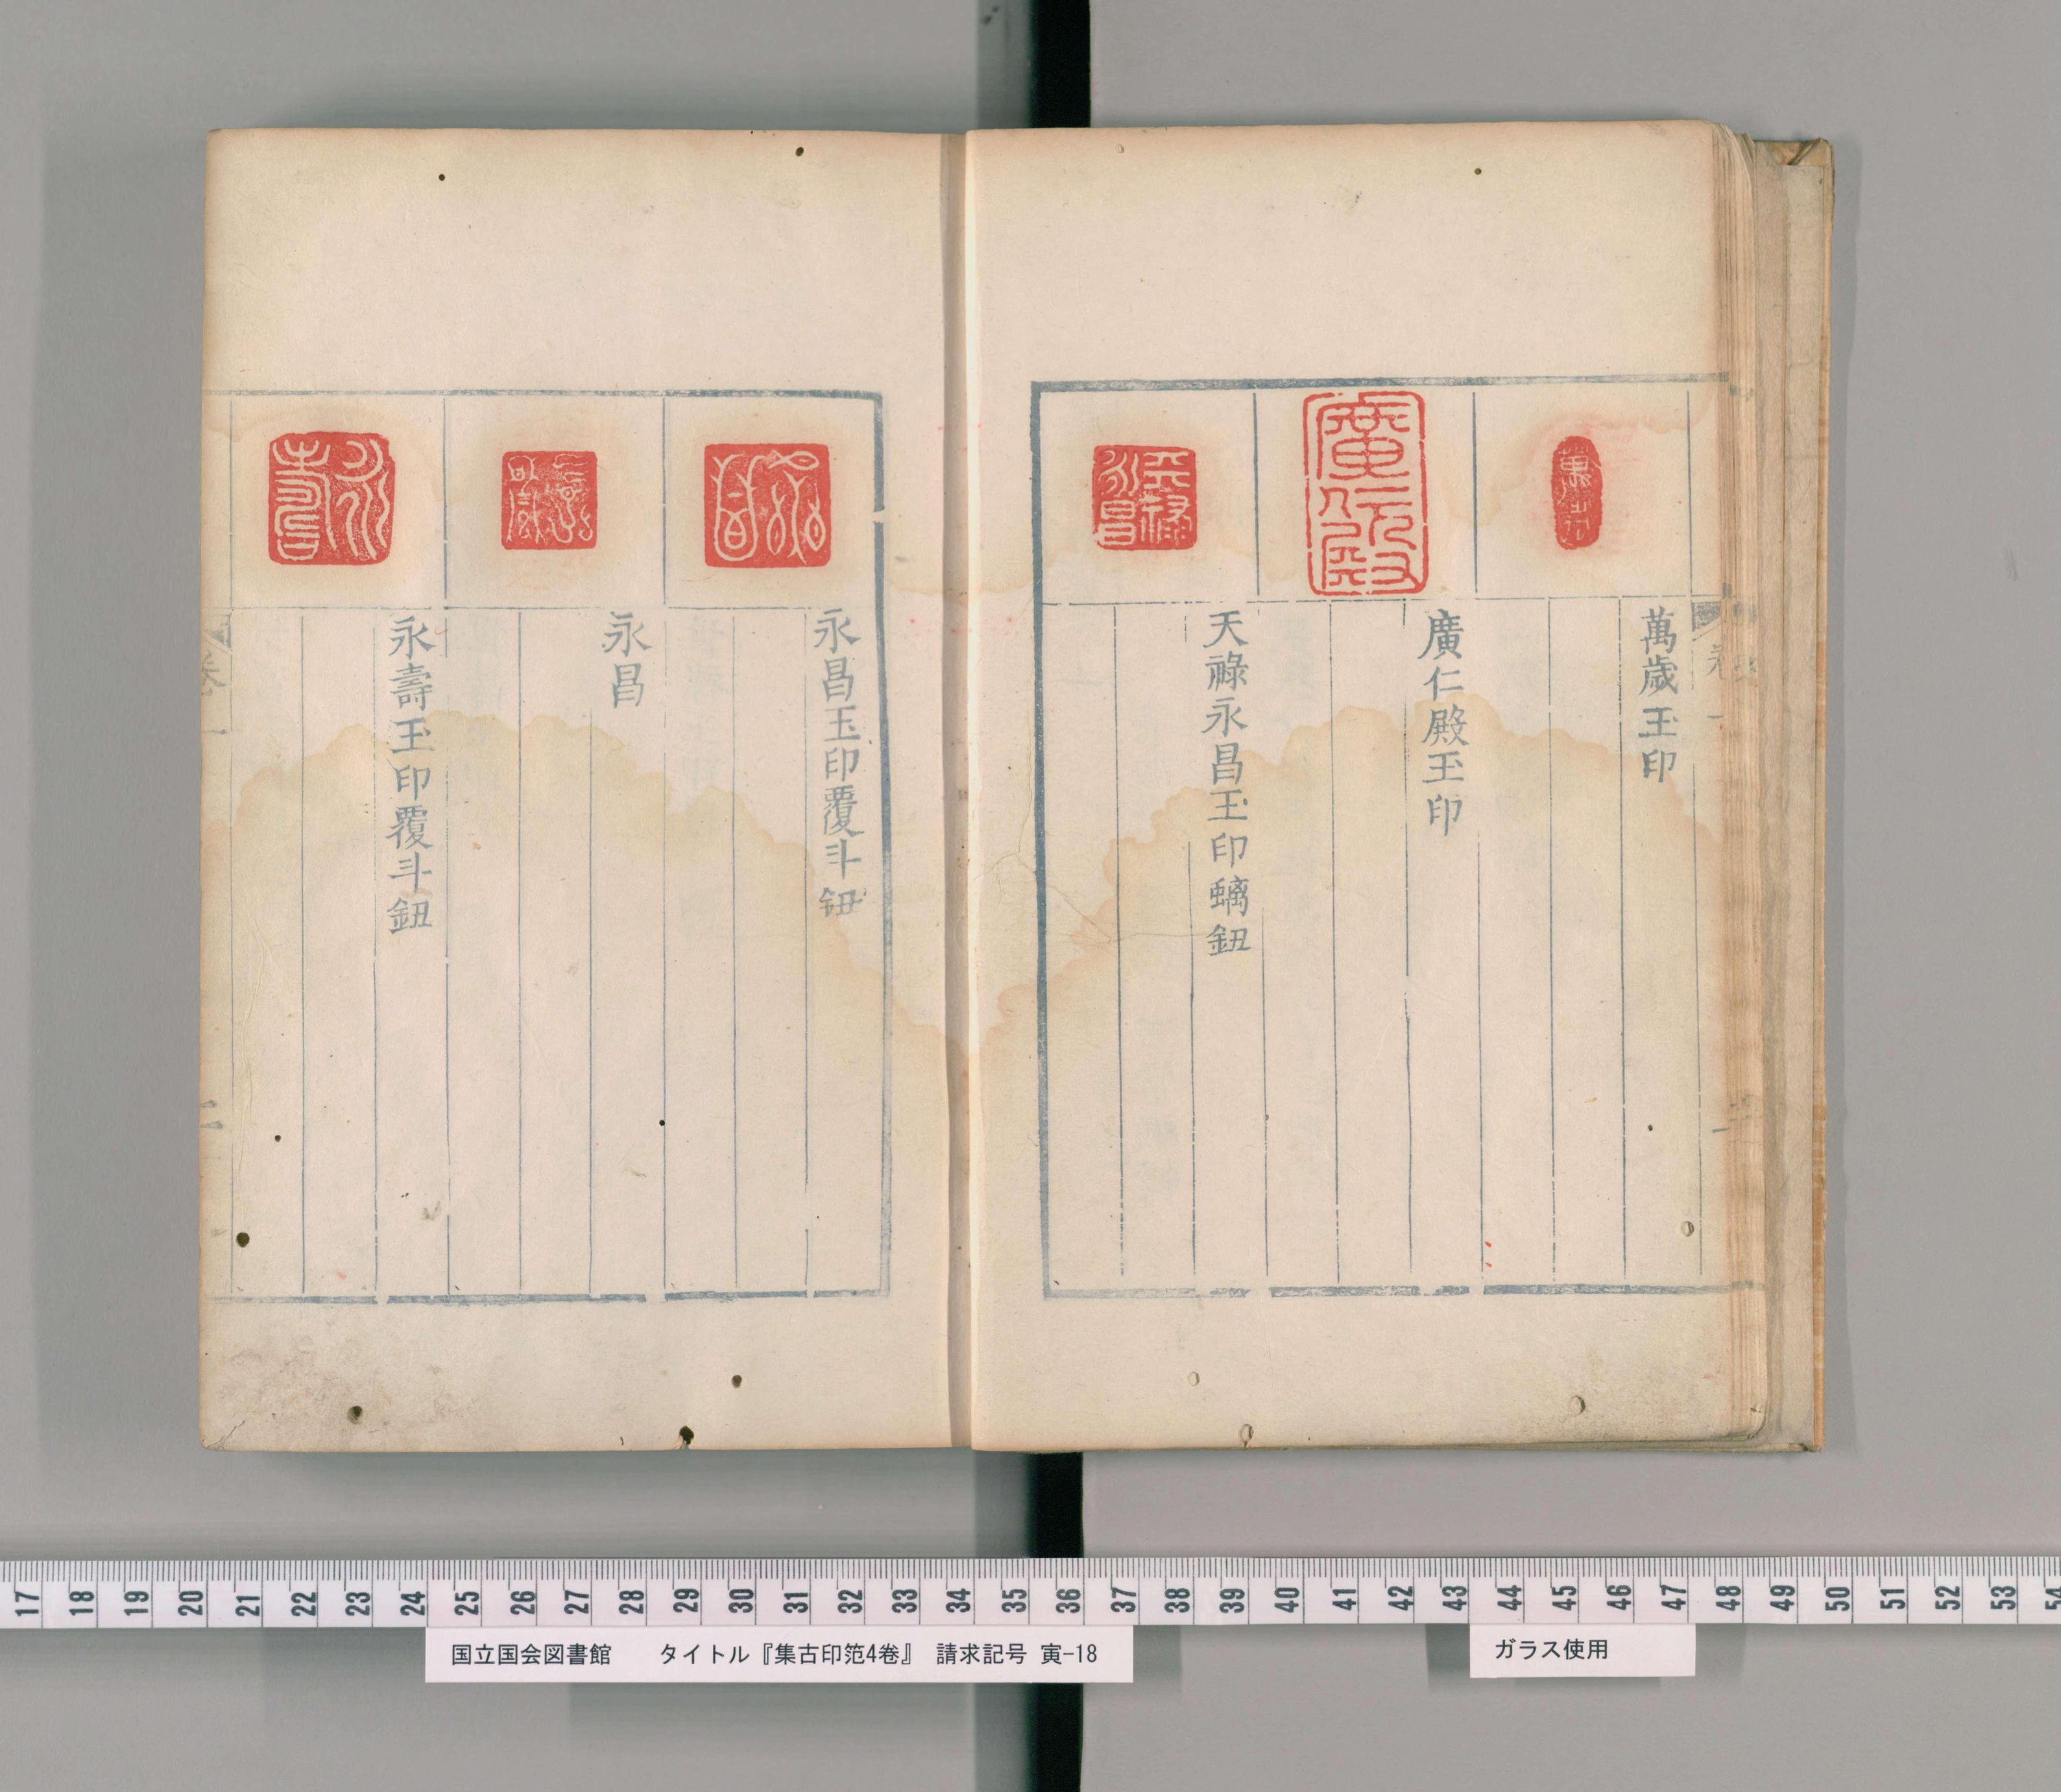 萬歲玉印
廣仁殿玉印
天祿永昌玉印螭鈕
永昌玉印覆斗钮
永昌
永壽玉印覆斗鈕
卷一
二
17 18 19 20 21 22 23 24 25 26 27 28 29 30 31 32 33 34 35 36 37 38 39 40 41 42 43 44 45 46 47 48 49 50 51 52 53 54
国立国会図書館 タイトル『集古印笵4巻』 請求記号 寅-18
ガラス使用